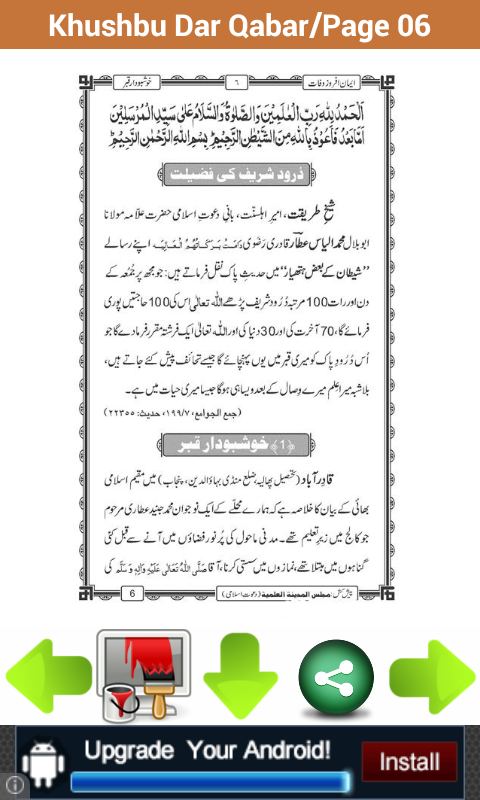 Khushbu Dar Qabar/Page 06
ایمان افروز وفات
٦
خوشبودار قبر
اَلْحَمْدُ لِلّٰهِ رَبِّ الْعٰلَمِيْنَ وَالصَّلٰوةُ وَالسَّلَامُ عَلٰى سَيِّدِ الْمُرْسَلِيْنَ
اَمَّا بَعْدُ فَاَعُوْذُ بِاللّٰهِ مِنَ الشَّيْطٰنِ الرَّجِيْمِ ؕ بِسْمِ اللّٰهِ الرَّحْمٰنِ الرَّحِيْمِ ؕ
دُرُود شریف کی فضیلت
شیخِ طریقت، امیرِ اہلسنّت، بانیِ دعوتِ اسلامی حضرت علّامہ مولانا
ابوبلال محمد الیاس عطّار قادری رَضَوی دَامَتْ بَرَكَاتُهُمُ الْعَالِيَه اپنے رسالے
’’شیطان کے بعض ہتھیار‘‘ میں حدیثِ پاک نقل فرماتے ہیں: جو مجھ پر جُمُعہ کے
دن اور رات 100 مرتبہ دُرُود شریف پڑھے اللہ تعالیٰ اس کی 100 حاجتیں پوری
فرمائے گا، 70 آخرت کی اور 30 دنیا کی اور اللہ تعالیٰ ایک فرشتہ مقرر فرمادے گا جو
اُس دُرُودِ پاک کو میری قبر میں یوں پہنچائے گا جیسے تمہیں تحائف پیش کئے جاتے ہیں،
بلاشبہ میرا علم میرے وِصال کے بعد ویسا ہی ہوگا جیسا میری حیات میں ہے۔
(جمع الجوامع، ۷/۱۹۹، حدیث: ۲۲۳۵۵)
﴿1﴾ خوشبودار قبر
قادِرآباد (تحصیل پھالیہ، ضلع منڈی بہاؤالدین، پنجاب) میں مقیم اسلامی
بھائی کے بیان کا خلاصہ ہے کہ ہمارے محلّے کے ایک نوجوان محمد جنید عطاری مرحوم
جو کالج میں زیرِ تعلیم تھے۔ مدنی ماحول کی پُرنور فضاؤں میں آنے سے قبل کئی
گناہوں میں مبتلا تھے، نمازوں میں سستی کرنا، آقا صَلَّى اللهُ تَعَالٰى عَلَيْهِ وَاٰلِهٖ وَسَلَّم کی
پیش کش: مجلس المدینۃ العلمیۃ (دعوتِ اسلامی)
6
Upgrade Your Android!
Install